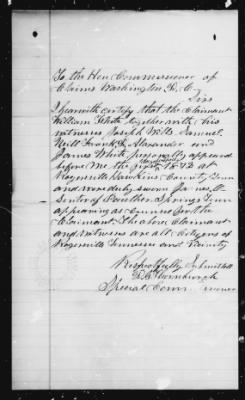 To the Hon Commissioner of
Claims Washington D. C.
Sirs
I herewith certify that the Claimant
William White together with his
witnesses Joseph Mills Samuel
Neill Frank D. Alexander and
James White personally appeared
before me the 1872 at
Rogersville Hawkins County Tenn
and were duly sworn James
Senter of Panther Springs Tenn
appearing as Council for the
Claimant the above Claimant
and witnesses are all Citizens of
Rogersville Tennessee and County
Respectfully Submitted
Special Com